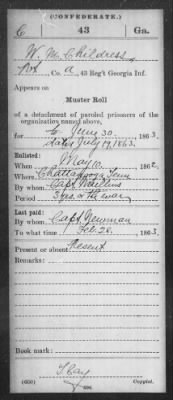 (CONFEDERATE.)
C 43 Ga.
W. M. Childress
Pvt Co. A, 43 Reg't Georgia Inf.
Appears on
Muster Roll
of a detachment of paroled prisoners of the
organization named above,
to June 30, 1863.
dated July 19, 1863.
Enlisted:
When May 10, 1862.
Where Chattanooga Tenn
By whom Capt
Period 3 yrs or the war
Last paid:
By whom Capt Newman
To what time Feb. 28, 1863
Present or absent Present
Remarks:
Book mark:
(650) Copyist.